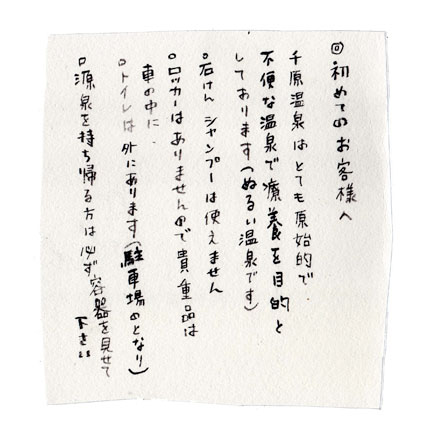 ◎初めてのお客様へ
千原温泉はとても原始的で.
不便な温泉で療養を目的と
しております(ぬるい温泉です)
○石けんシャンプーは使えません
○ロッカーはありませんので貴重品は
車の中に.
○トイレは外にあります(駐車場のとなり)
○源泉を持ち帰る方は必ず容器を見せて
下さい